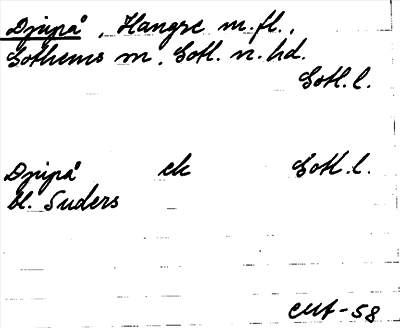 Djupå, Hangre m.fl.,
Gothems m, Gotl. n. hd.
Gotl. l.
Djupå ek Gotl. l.
bl. Suders
CMf-58